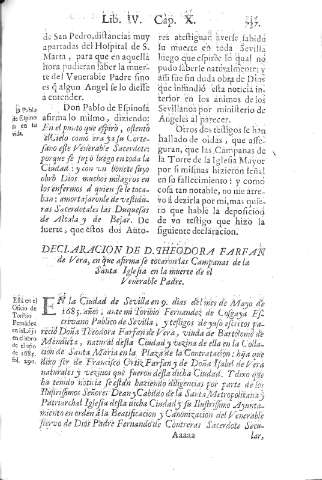 Lib. IV. Cap. X.
de San Pedro, distancias muy
apartadas del Hospital de S.
Marta, para que en aquella
hora pudieran saber la muerte
del Venerable Padre sino
es q̃ algun Angel se lo diesse
a entender.
Don Pablo de Espinosa
afirma lo mismo, diziendo:
En el punto que espirò, ostentò
el Cielo como era yà su Cortesano
este Venerable Sacerdote:
porque se supo luego en toda la
Ciudad: y con un bonete suyo
obrò Dios muchos milagros en
los enfermos à quien se le tocaba:
amortajaronle de vestiduras
Sacerdotales las Duquesas
de Alcalà y de Bejar. De
suerte, que estos dos Autores
atestiguan averse sabido
su muerte en toda Sevilla
luego que espirò lo qual no
pudo saberse naturalmente: y
assi fue sin duda obra de Dios
que infundiò esta noticia interior
en los animos de los
Sevillanos por ministerio de
Angeles al parecer.
Otros dos testigos se han
hallado de oidas, que asseguran,
que las Campanas de
la Torre de la Iglesia Mayor
por si mismas hizieron señal
en su fallecimiento: y como
cosa tan notable, no me atrevo
à dezirla por mi, mas quiero
que hable la deposicion
de vn testigo que hizo la
siguiente declaracion.
DECLARACION DE D. THEODORA FARFAN
de Vera, en que afirma se tocaron las Campanas de la
Santa Iglesia en la muerte de el
Venerable Padre.
EN la Ciudad de Sevilla en 9. dias del mes de Mayo de
1685. años, ante mi Toribio Fernandez de Cosgaya Escrivano
Publico de Sevilla, y testigos de yuso escritos pareciò
Doña Theodora Farfan de Vera, viuda de Bartholomè de
Mendieta, natural desta Ciudad y vezina de ella en la Collacion
de Santa Maria en la Plaza de la Contratacion: hija que
dixo ser de Francisco Ortiz Farfan y de Doña Isabel de Vera
naturales y vezinos que fueron desta dicha Ciudad. Y dixo que
ha tenido noticia se estàn haziendo diligencias por parte de los
Ilustrissimos Señores Dean y Cabildo de la Santa Metropolitana y
Patriarchal Iglesia desta dicha Ciudad y su Ilustrissimo Ayuntamiento
en orden à la Beatificacion y Canonizacion del Venerable
siervo de Dios Padre Fernando de Contreras Sacerdote Secu-
Aaaaa
lar,